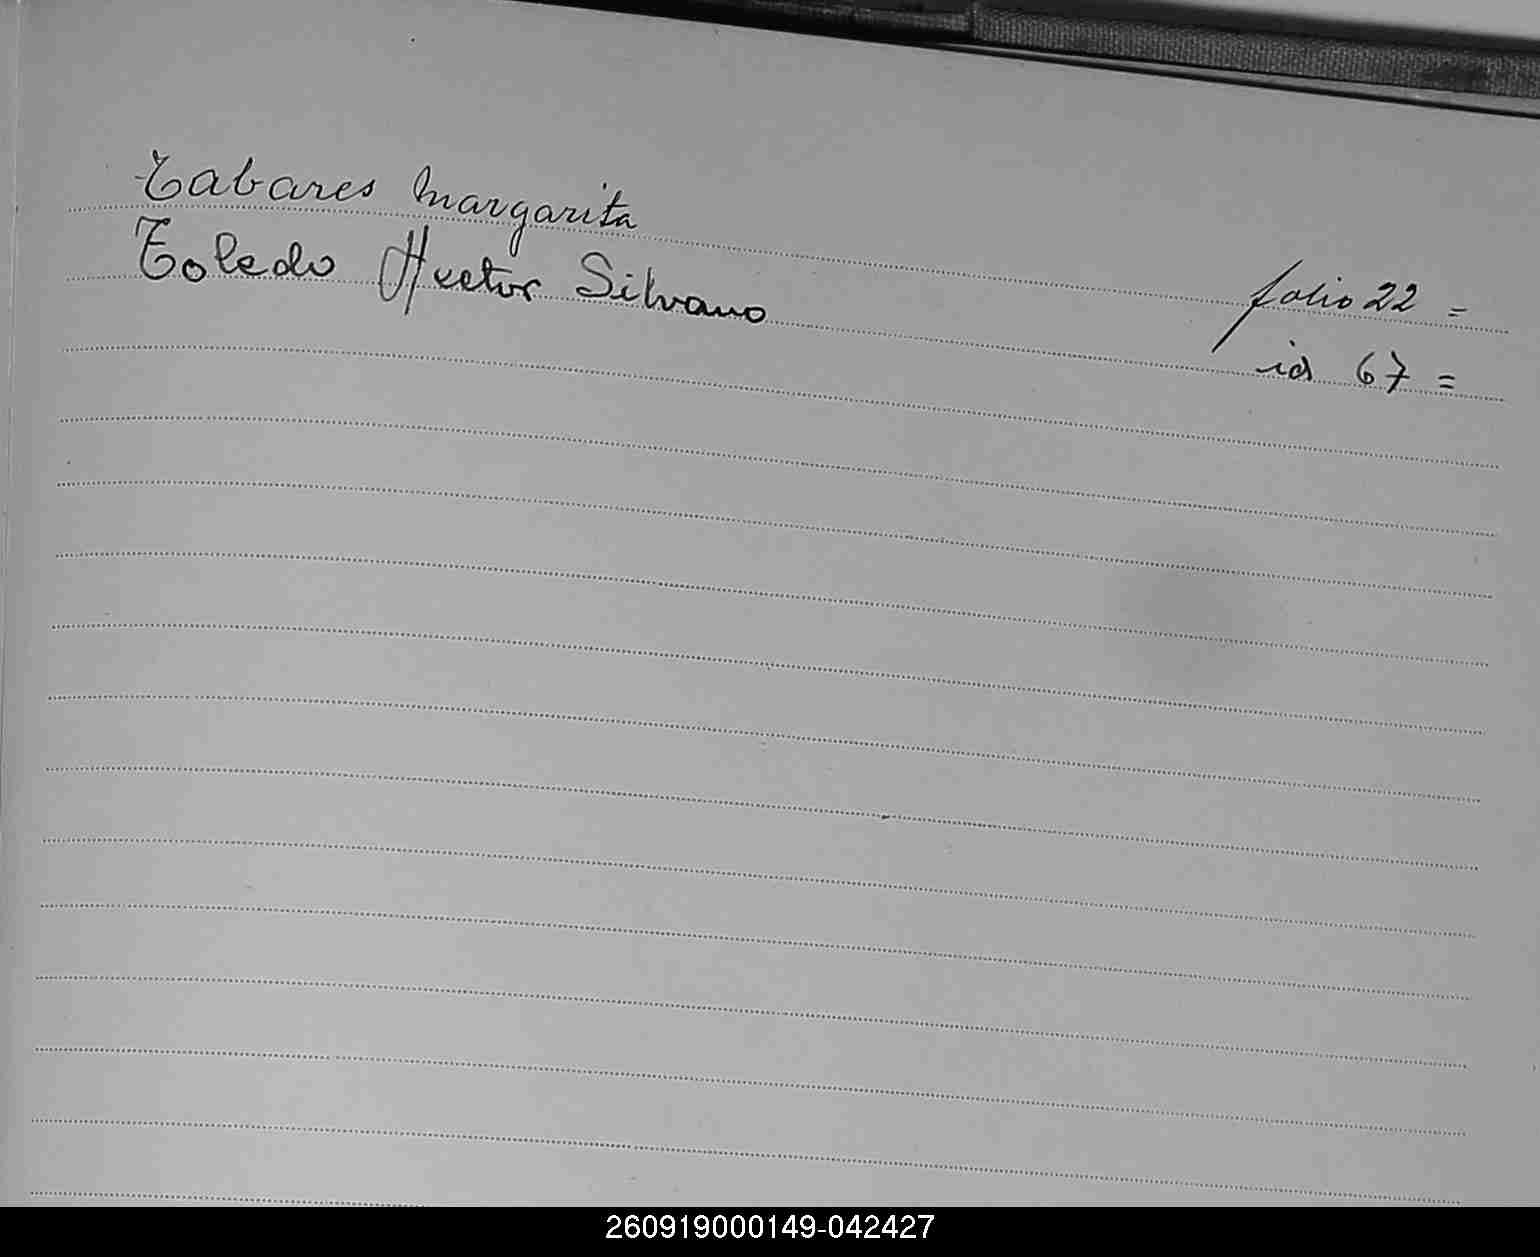 Tabares Margarita folio 22 =
Toledo Hector Silvano id 67 =
260919000149-042427